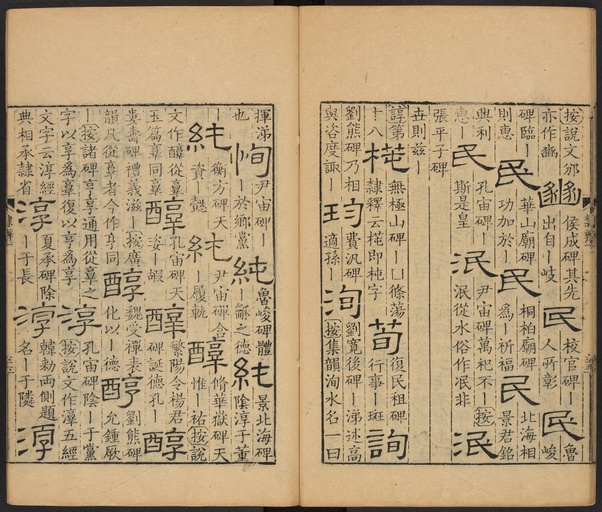 按說文邠亦作豳 豩 侯成碑其先出自｜岐 民 校官碑｜人所彰 民 魯峻
碑臨｜則惠 民 華山廟碑功加於｜ 民 桐柏廟碑為｜祈福 民 北海相景君銘
興利惠｜ 民 孔宙碑｜斯是皇 泯 尹宙碑萬祀不｜按泯從水俗作冺非 泯
張平子碑世則茲｜
諄第十八 㮧 無極山碑｜凵條蕩隸釋云㮧即杶字 荀 復民租碑行事｜班 詢
劉熊碑乃相與咨度諏｜ 玽 費汎碑適孫｜ 洵 劉寬後碑｜涕逑高按集韻洵水名一曰
揮涕也 恂 尹宙碑｜｜於鄉黨 純 魯峻碑體｜龢之德 純 景北海碑陰淳于董
純 衡方碑天資｜懿 純 尹宙碑含｜履軌 醇 脩華嶽碑天惟｜祐按說
文作醇從𦎫玉篇𦎫同𦎫 醇 孔宙碑天姿｜嘏 醇 繁陽令楊君碑誕德孔｜ 醇
婁壽碑禮義滋｜按廣韻凡從𦎫者今作享同 醇 魏受禪表化以｜德 醇 劉熊碑允鍾厥
｜按諸碑亨享通用從𦎫之字以享為𦎫復以亨為享 淳 孔宙碑陰｜于黨按說文作𣽎五經
文字云淳經典相承隸省 淳 夏承碑除｜于長 淳 韓勑兩側題名｜于隣 淳